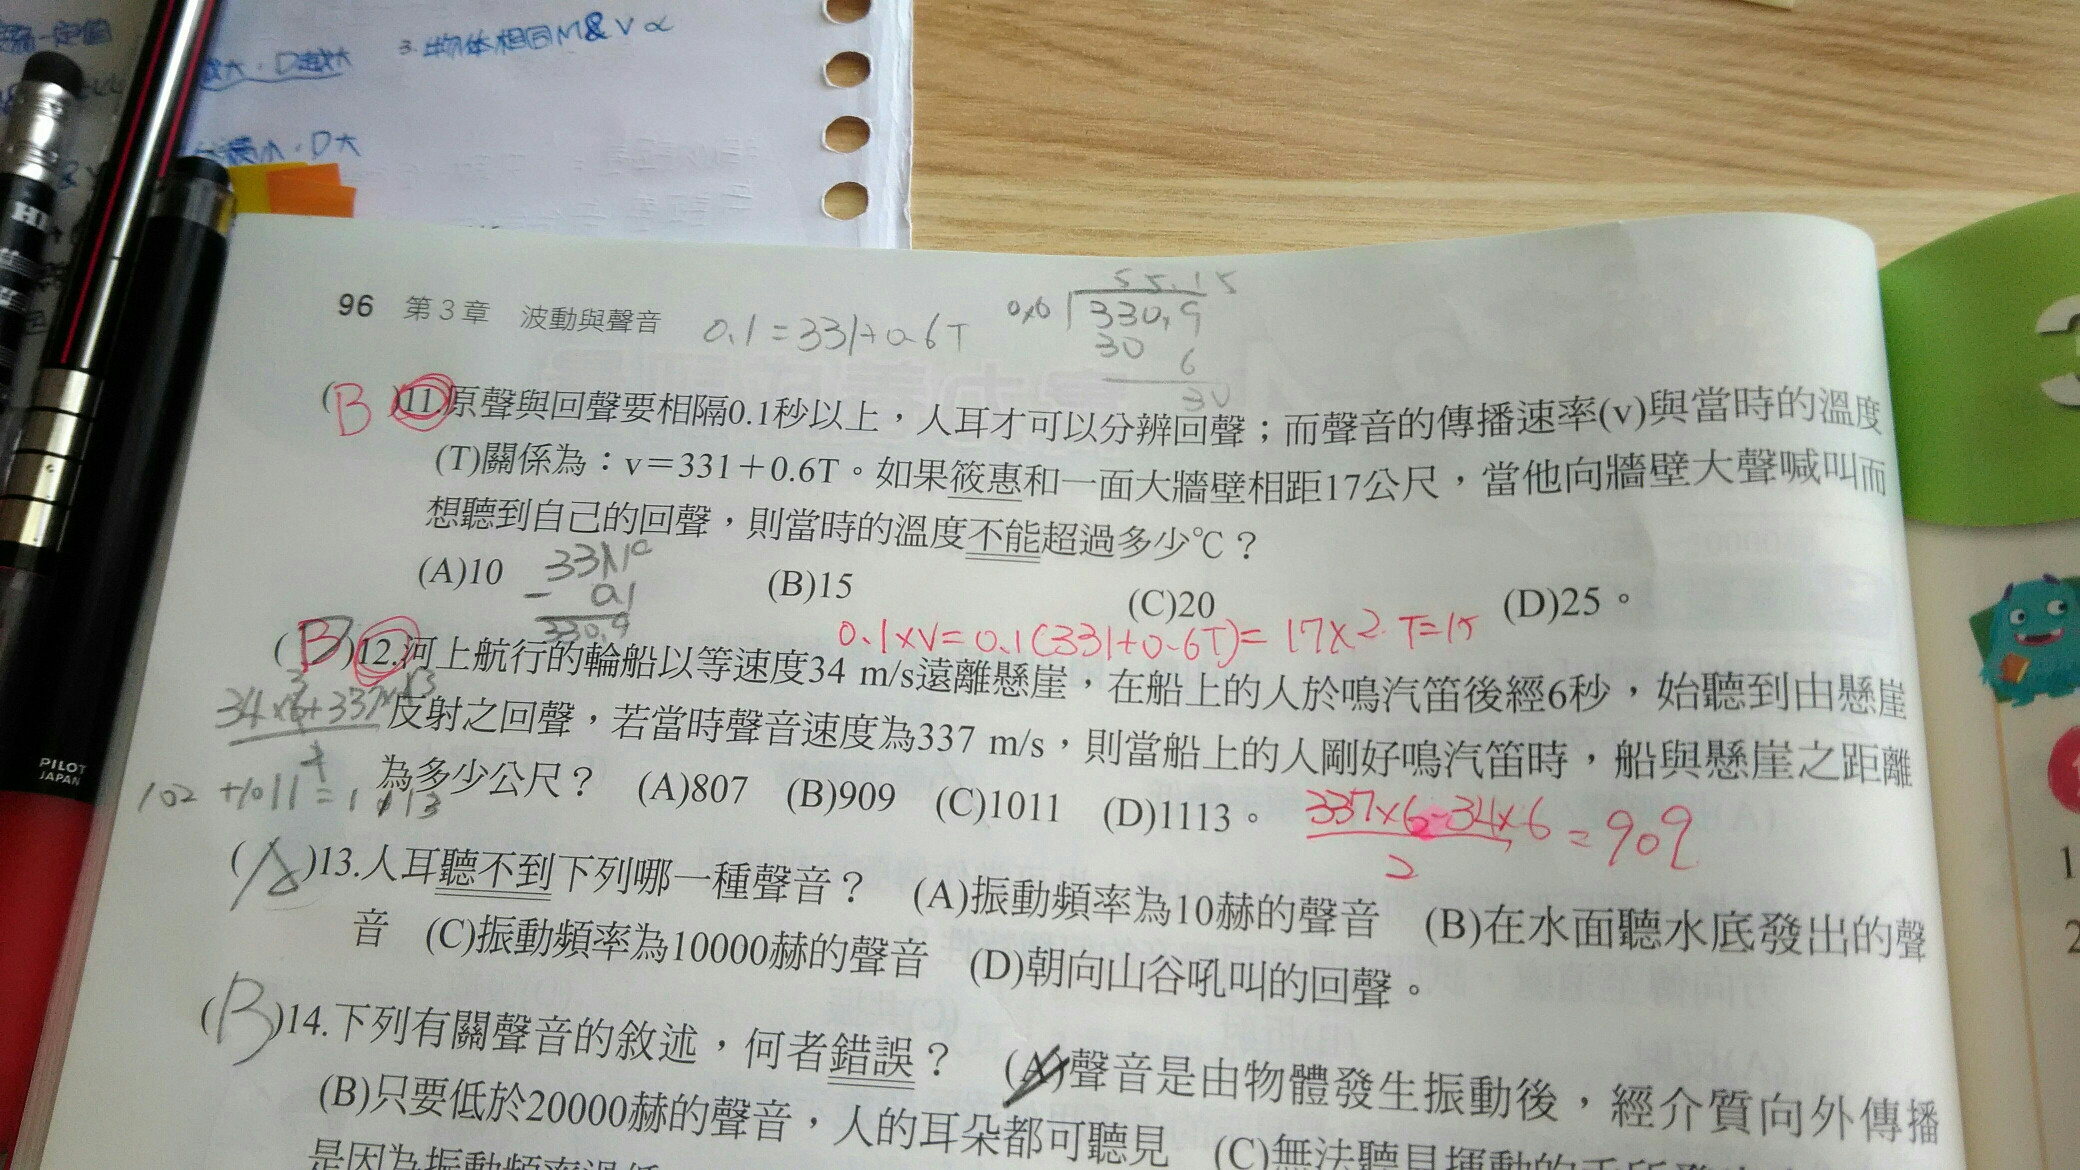 3.物体相同M&V∝
越大,D越大
積小,D大
96 第3章 波動與聲音
0.1=331+0.6T
55.15
0.6 330.9
30
6
30
(B)11.原聲與回聲要相隔0.1秒以上,人耳才可以分辨回聲;而聲音的傳播速率(v)與當時的溫度
(T)關係為:v=331+0.6T。如果筱惠和一面大牆壁相距17公尺,當他向牆壁大聲喊叫而
想聽到自己的回聲,則當時的溫度不能超過多少℃?
(A)10 (B)15 (C)20 (D)25。
- 0.1
330.9
0.1×V=0.1(331+0.6T)=17×2 T=15
(B)12.河上航行的輪船以等速度34 m/s遠離懸崖,在船上的人於鳴汽笛後經6秒,始聽到由懸崖
反射之回聲,若當時聲音速度為337 m/s,則當船上的人剛好鳴汽笛時,船與懸崖之距離
為多少公尺? (A)807 (B)909 (C)1011 (D)1113。
102+1011=1113
337×6-34×6
2
=909
(A)13.人耳聽不到下列哪一種聲音? (A)振動頻率為10赫的聲音 (B)在水面聽水底發出的聲
音 (C)振動頻率為10000赫的聲音 (D)朝向山谷吼叫的回聲。
(B)14.下列有關聲音的敘述,何者錯誤? (A)聲音是由物體發生振動後,經介質向外傳播
(B)只要低於20000赫的聲音,人的耳朵都可聽見 (C)無法聽見揮動的手所發
是因為振動頻率過低
PILOT
JAPAN
3
1
2